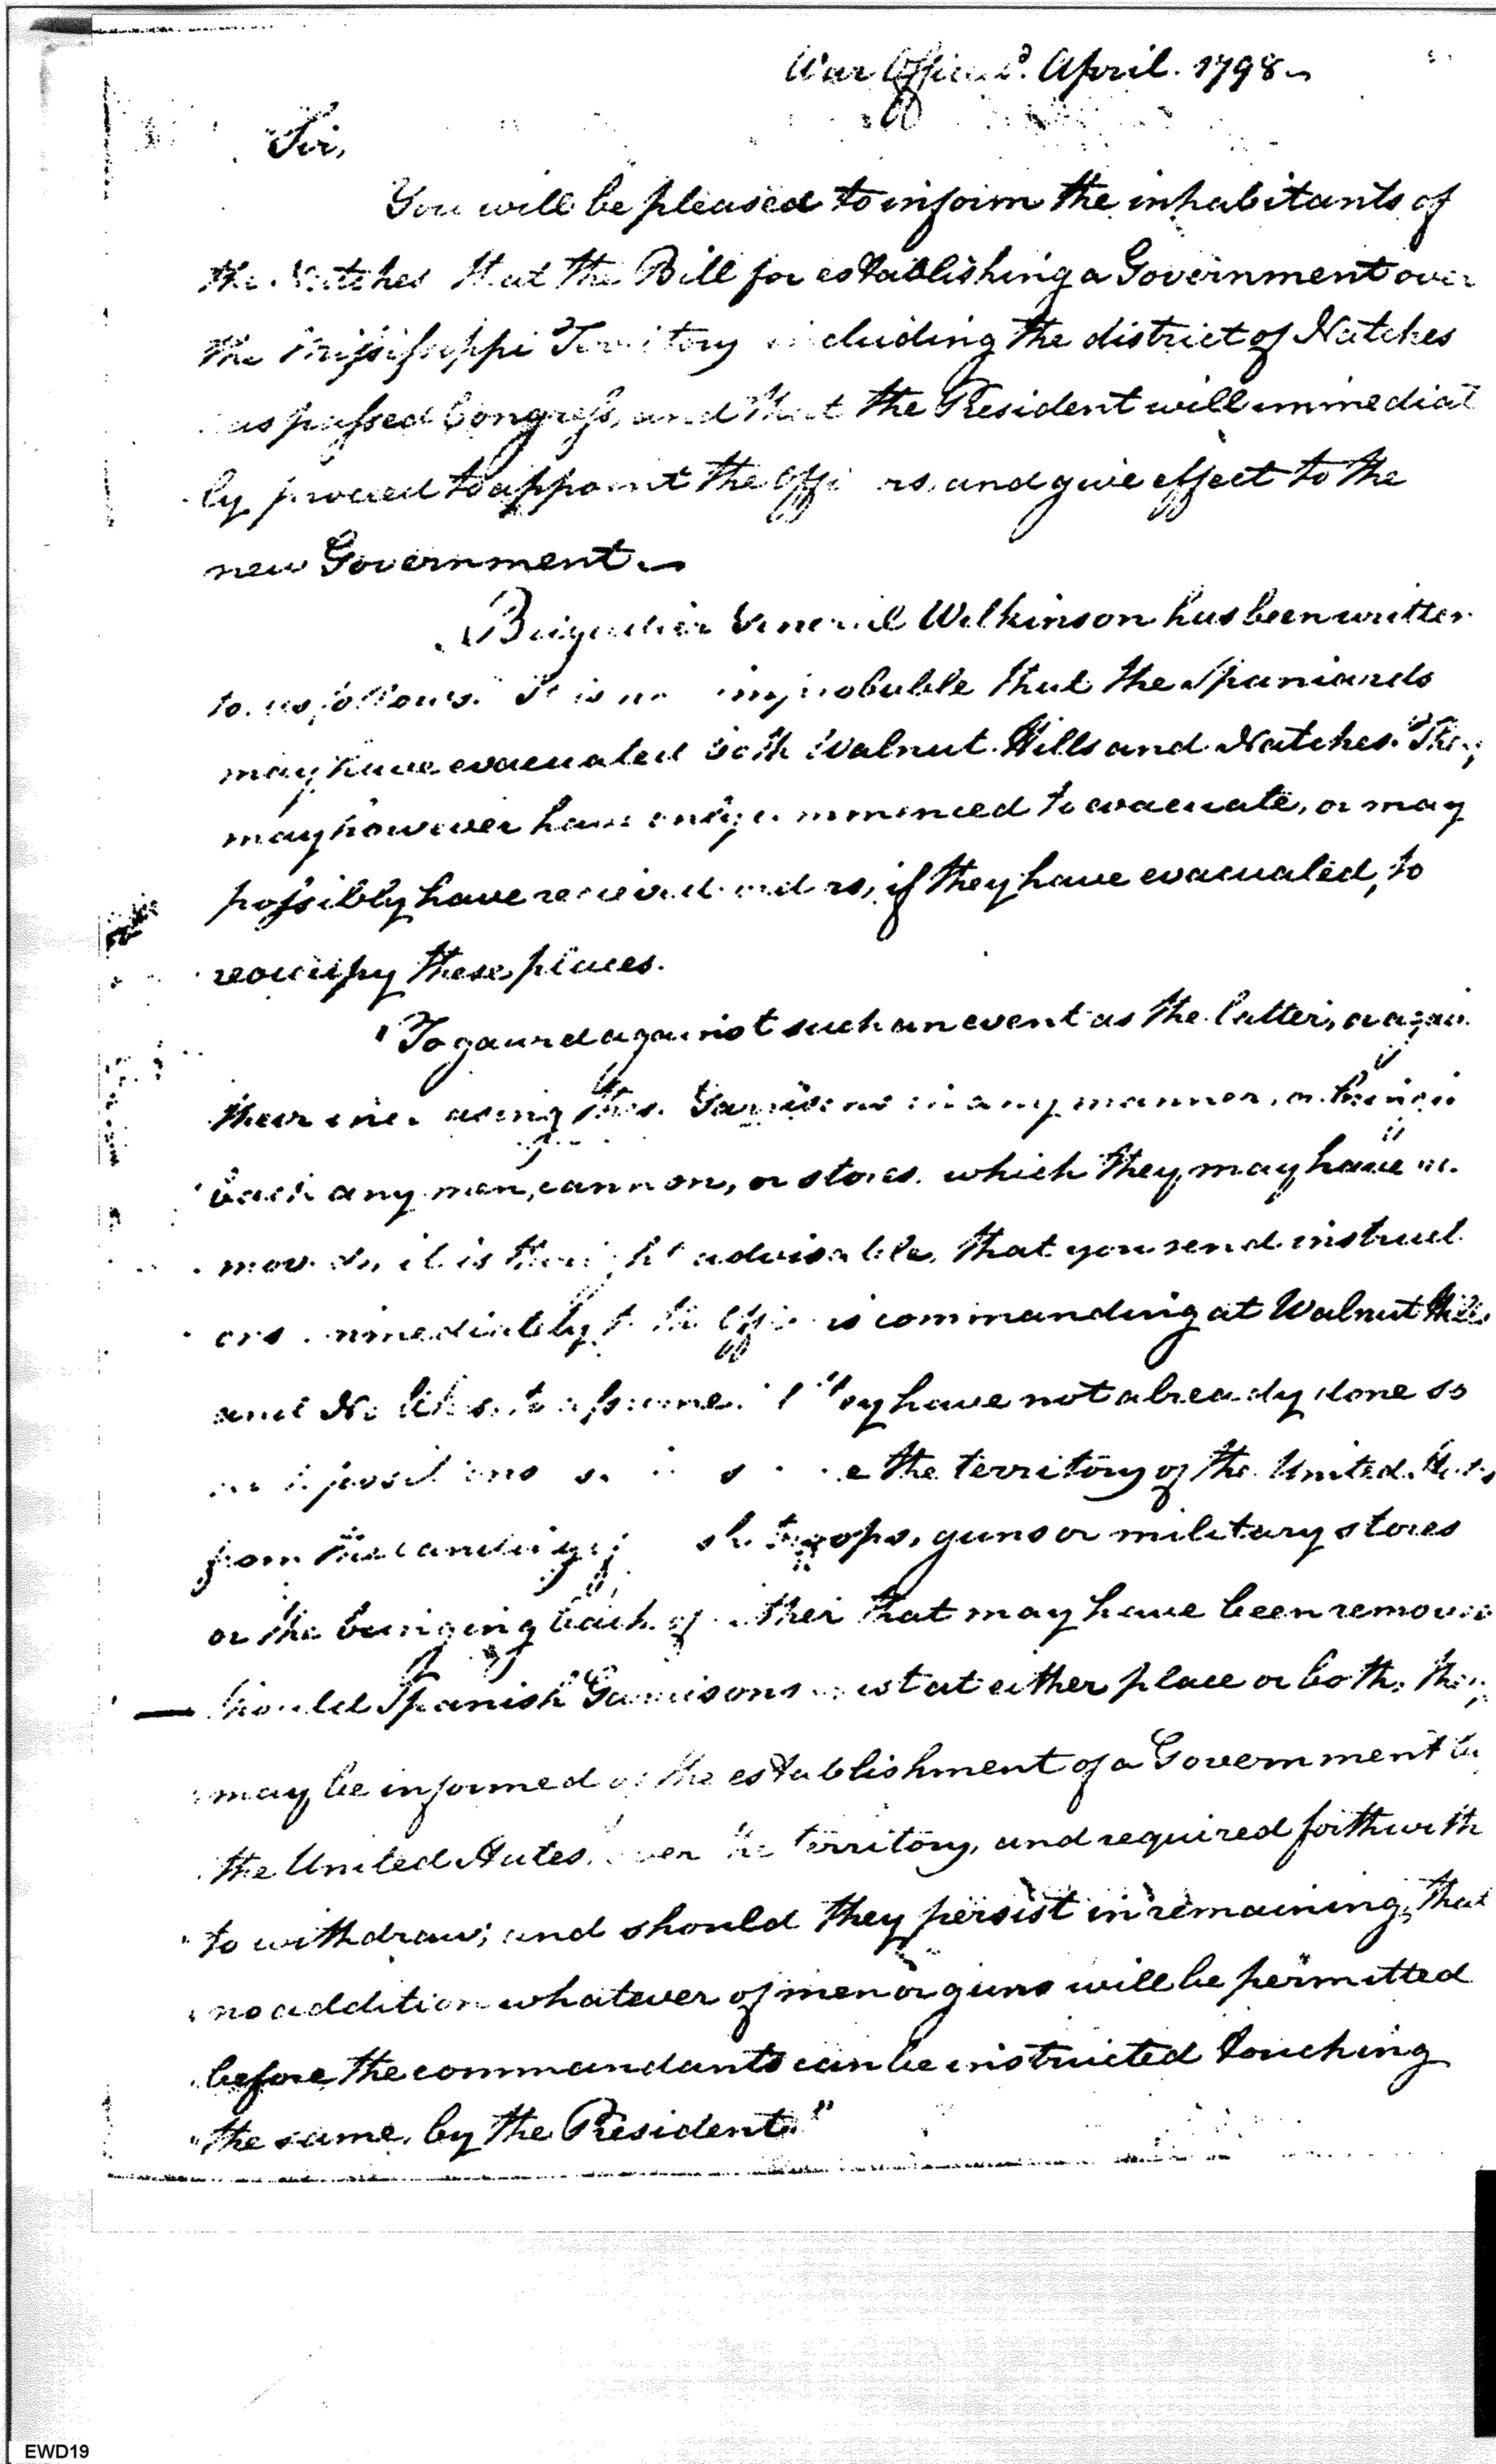 War Office April. 1798
Sir,
You will be pleased to inform the inhabitants of
the Natches that the Bill for establishing a Government over
the Missisippi Territory including the district of Natches
has passed Congress, and that the President will immediat
ly proceed to appoint the officers, and give effect to the
new Government.
Brigadier General Wilkinson has been written
to as follows. "It is not improbable that the Spaniards
may have evacuated both Walnut Hills and Natches. They
may however have only commenced to evacuate, or may
possibly have received orders, if they have evacuated, to
reoccupy these places.
"To gaurd against such an event as the latter, or again
their increasing their Garrisons in any manner, or bringing
back any men, cannon, or stores which they may have re
moved, it is thought advisable, that you send instruct
ons immediately to the officers commanding at Walnut Hills
and Natches to assume if they have not already done so
positions the territory of the United States
from the landing of troops, guns or military stores
or the bringing back of either that may have been removed
— Should Spanish Garrisons exist at either place or both, they
may be informed of the establishment of a Government by
the United States over the territory, and required forthwith
to withdraw; and should they persist in remaining, that
no addition whatever of men or guns will be permitted
before the commandants can be instructed touching
"the same, by the President."
EWD19